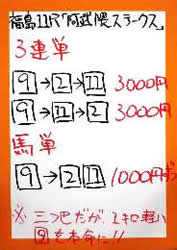 福島11R「阿武隈ステークス」
3連単
9→2→11 3000円
9→11→2 3000円
馬単
9→2 11 1000円ずつ
※三つ巴だが、1キロ軽い
9を本命に!!